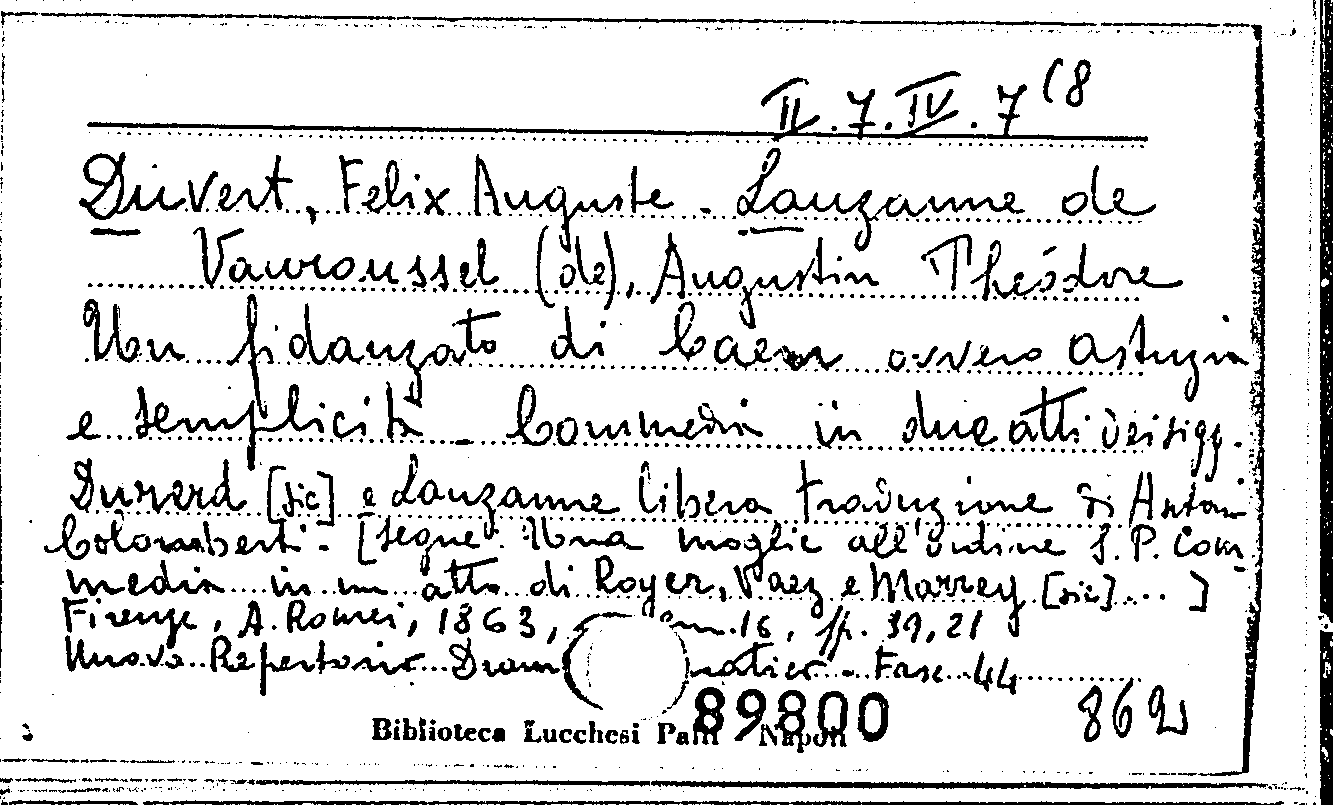 II.7.IV.7(8
Duvert, Felix Auguste - Lauzanne de
Vauroussel (de), Augustin Théodore
Un fidanzato di Caen ovvero astuzia
e semplicità - Commedia in due atti dei sigg.
Durerd [sic] e Lauzanne libera traduzione di Antoni
Colomberti - [segue: Una moglie all'ordine S.P. Com-
media in un atto di Royer, Vaez e Marrey [sic] ... ]
Firenze, A. Romei, 1863, 16, pp. 39, 21
Nuovo Repertorio Dram matico - Fasc 44
89800
862
Biblioteca Lucchesi Palli Napoli